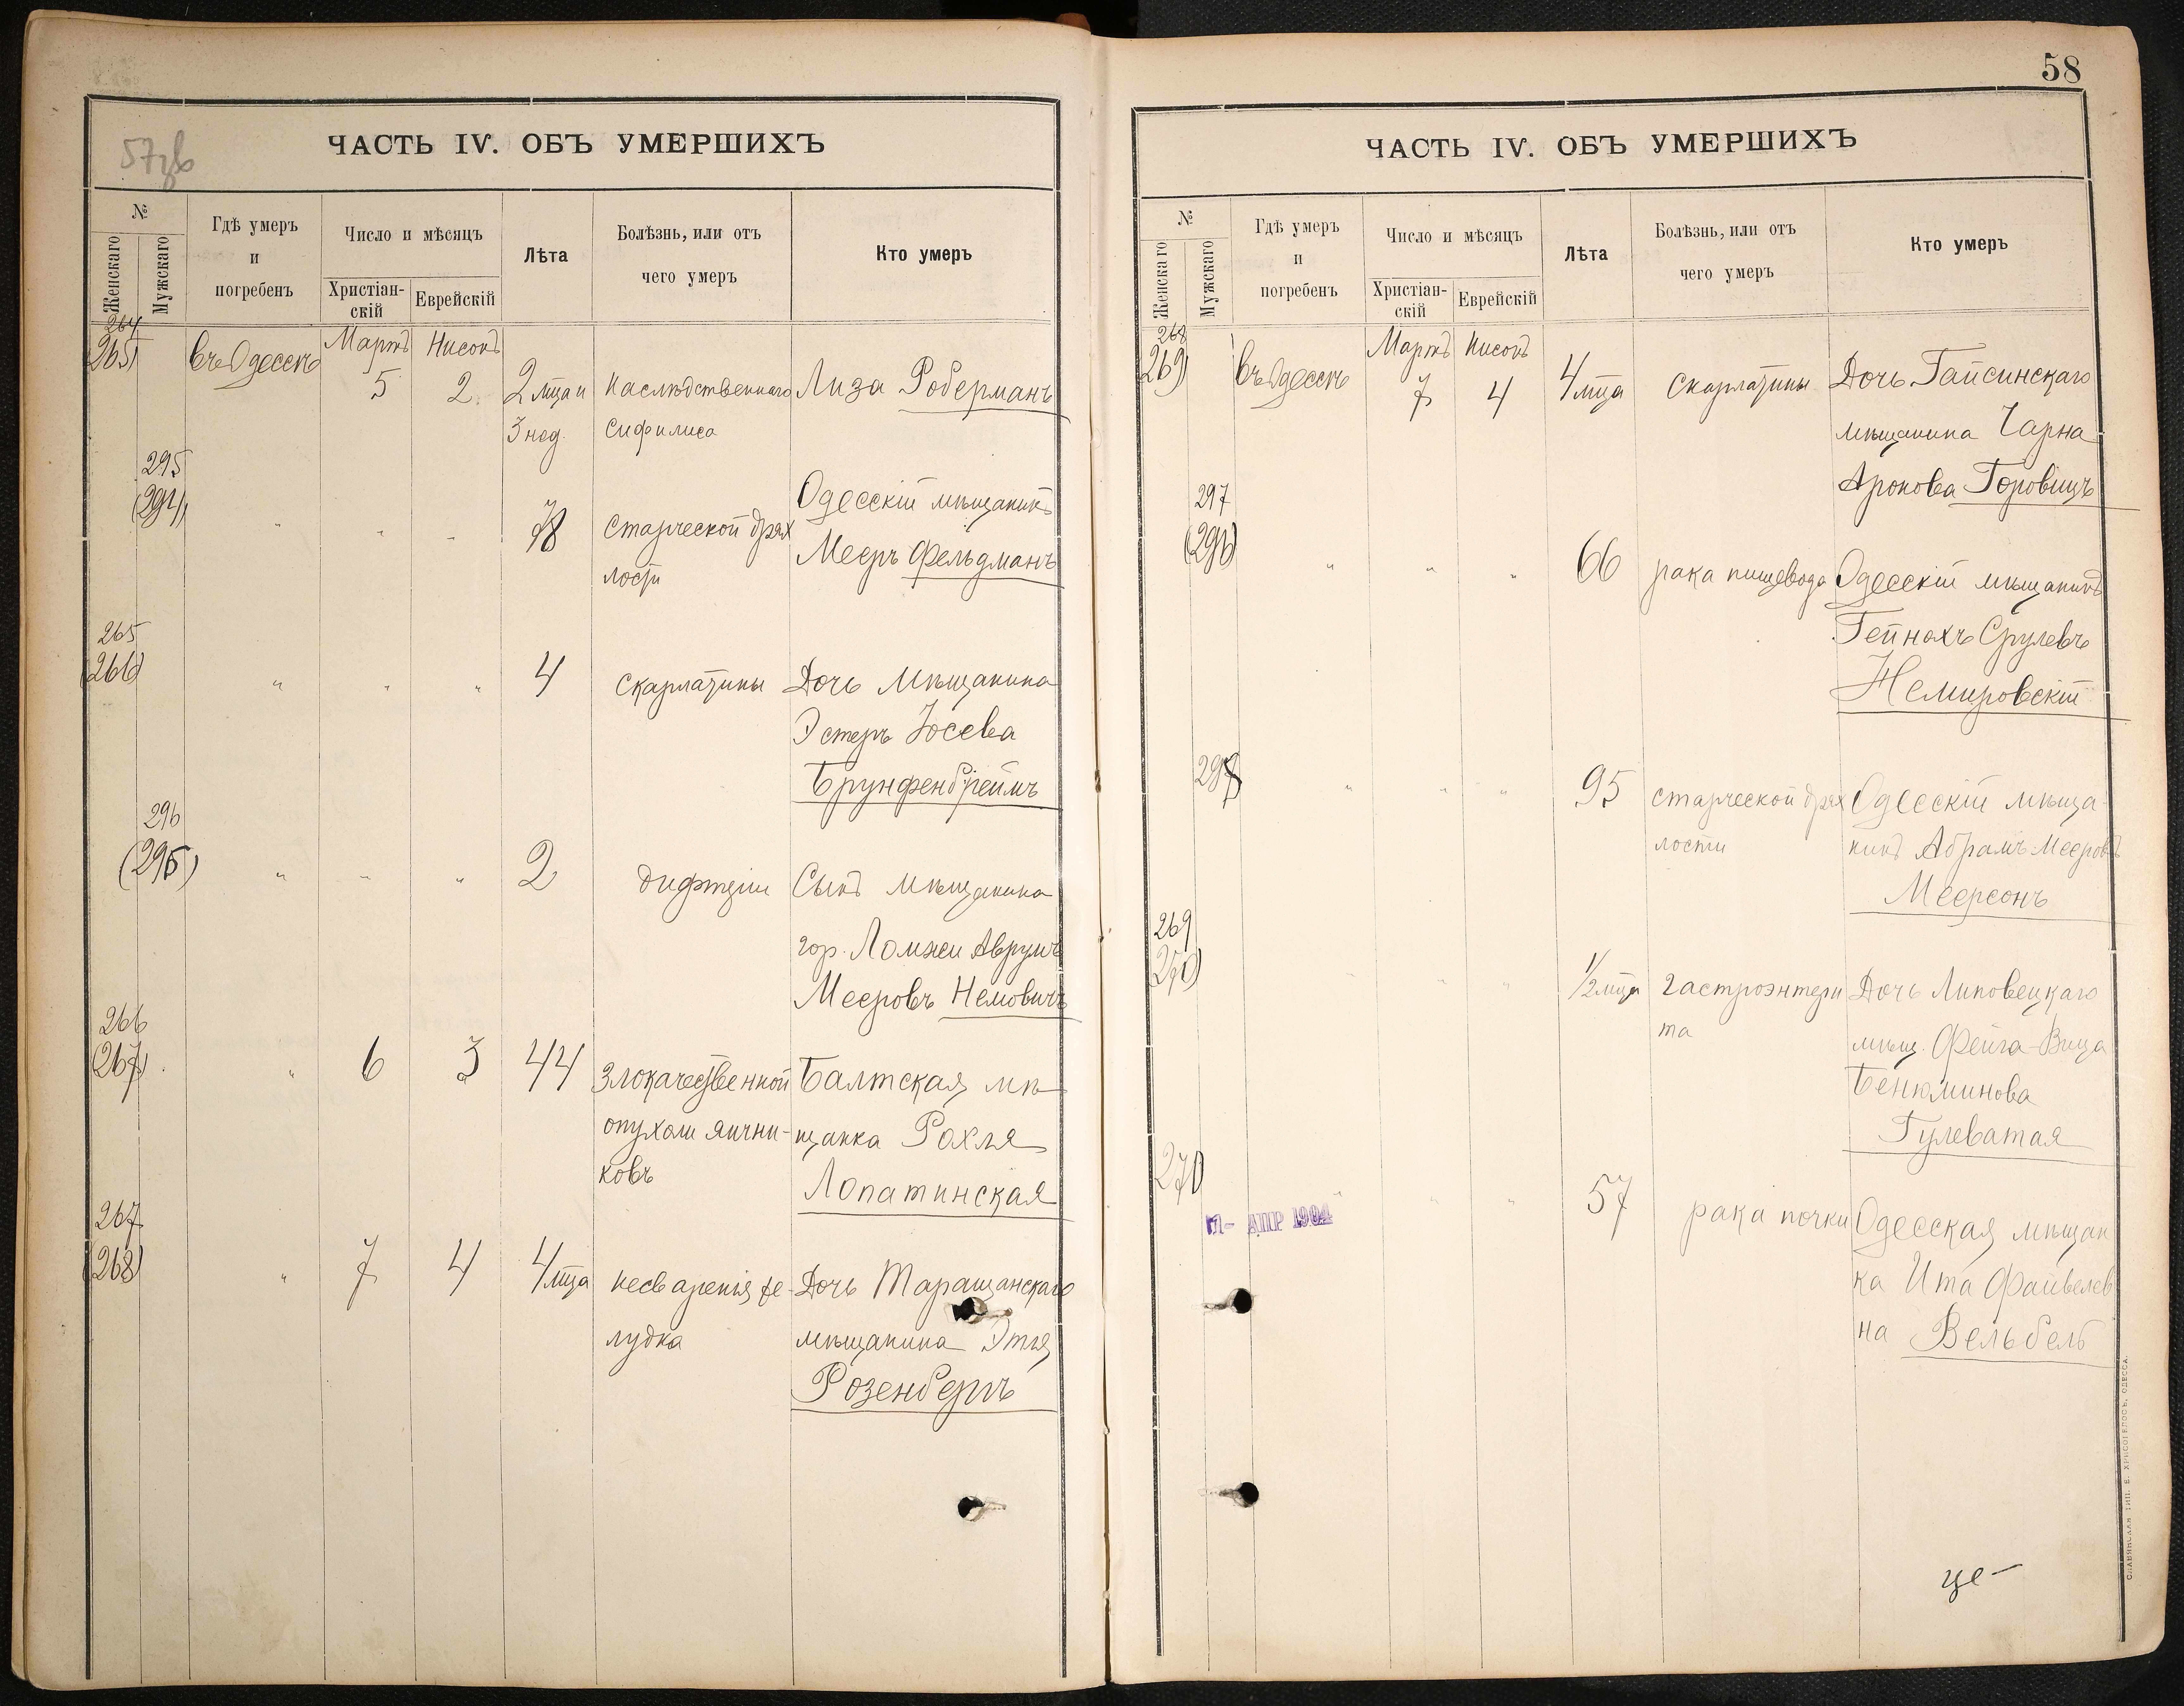 57об
ЧАСТЬ IV. ОБЪ УМЕРШИХЪ
№
Женскаго
Мужскаго
Гдѣ умеръ
и
погребенъ
Число и мѣсяцъ
Христіан-
скій
Еврейскій
Лѣта
Болѣзнь, или отъ
чего умеръ
Кто умеръ
264
265)
въ Одессѣ
Мартъ
Нисонъ
5
2
2 м̃ца и
3 нед.
Наслѣдственнаго
сифилиса
Лиза Роберманъ
295
(294)
"
"
"
78
Старческой дрях
лости
Одесскій мѣщанинъ
Мееръ Фельдманъ
265
(266)
"
"
"
4
Скарлатины
Дочь мѣщанина
Эстеръ Іосева
Брунфенбрейтъ
296
(295)
"
"
"
2
дифтеріи
Сынъ мѣщанина
гор. Ломжи Аврумъ
Мееровъ Немовичъ
266
(267)
"
6
3
44
Злокачественной
опухоли яични-
ковъ
Балтская мѣ-
щанка Рохля
Лопатинская
267
(268)
"
7
4
4 м̃ца
несваренія же-
лудка
Дочь Таращанскаго
мѣщанина Этля
Розенбергъ
58
ЧАСТЬ IV. ОБЪ УМЕРШИХЪ
№
Женскаго
Мужскаго
Гдѣ умеръ
и
погребенъ
Число и мѣсяцъ
Христіан-
скій
Еврейскій
Лѣта
Болѣзнь, или отъ
чего умеръ
Кто умеръ
268
269)
въ Одессѣ
Мартъ
Нисонъ
7
4
4 м̃ца
Скарлатины
Дочь Гайсинскаго
мѣщанина Чарна
Аронова Горовицъ
297
(296)
"
"
"
66
рака пищевода
Одесскій мѣщанинъ
Гейнохъ Срулевъ
Немировскій
298
"
"
"
95
старческой дрях
лости
Одесскій мѣща-
нинъ Абрамъ Мееровъ
Меерсонъ
269
270)
"
"
"
1/2 м̃ца
гастроэнтери
та
Дочь Липовецкаго
мѣщ. Фейга-Вица
Бенюминова
Гулеватая
270
"
"
"
57
рака почки
Одесская мѣщан
ка Ита Файвелев
на Вельбель
АПР 1904
СЛАВЯНСКАЯ ТИП. Е. ХРИСОГЕЛОСЪ, ОДЕССА.